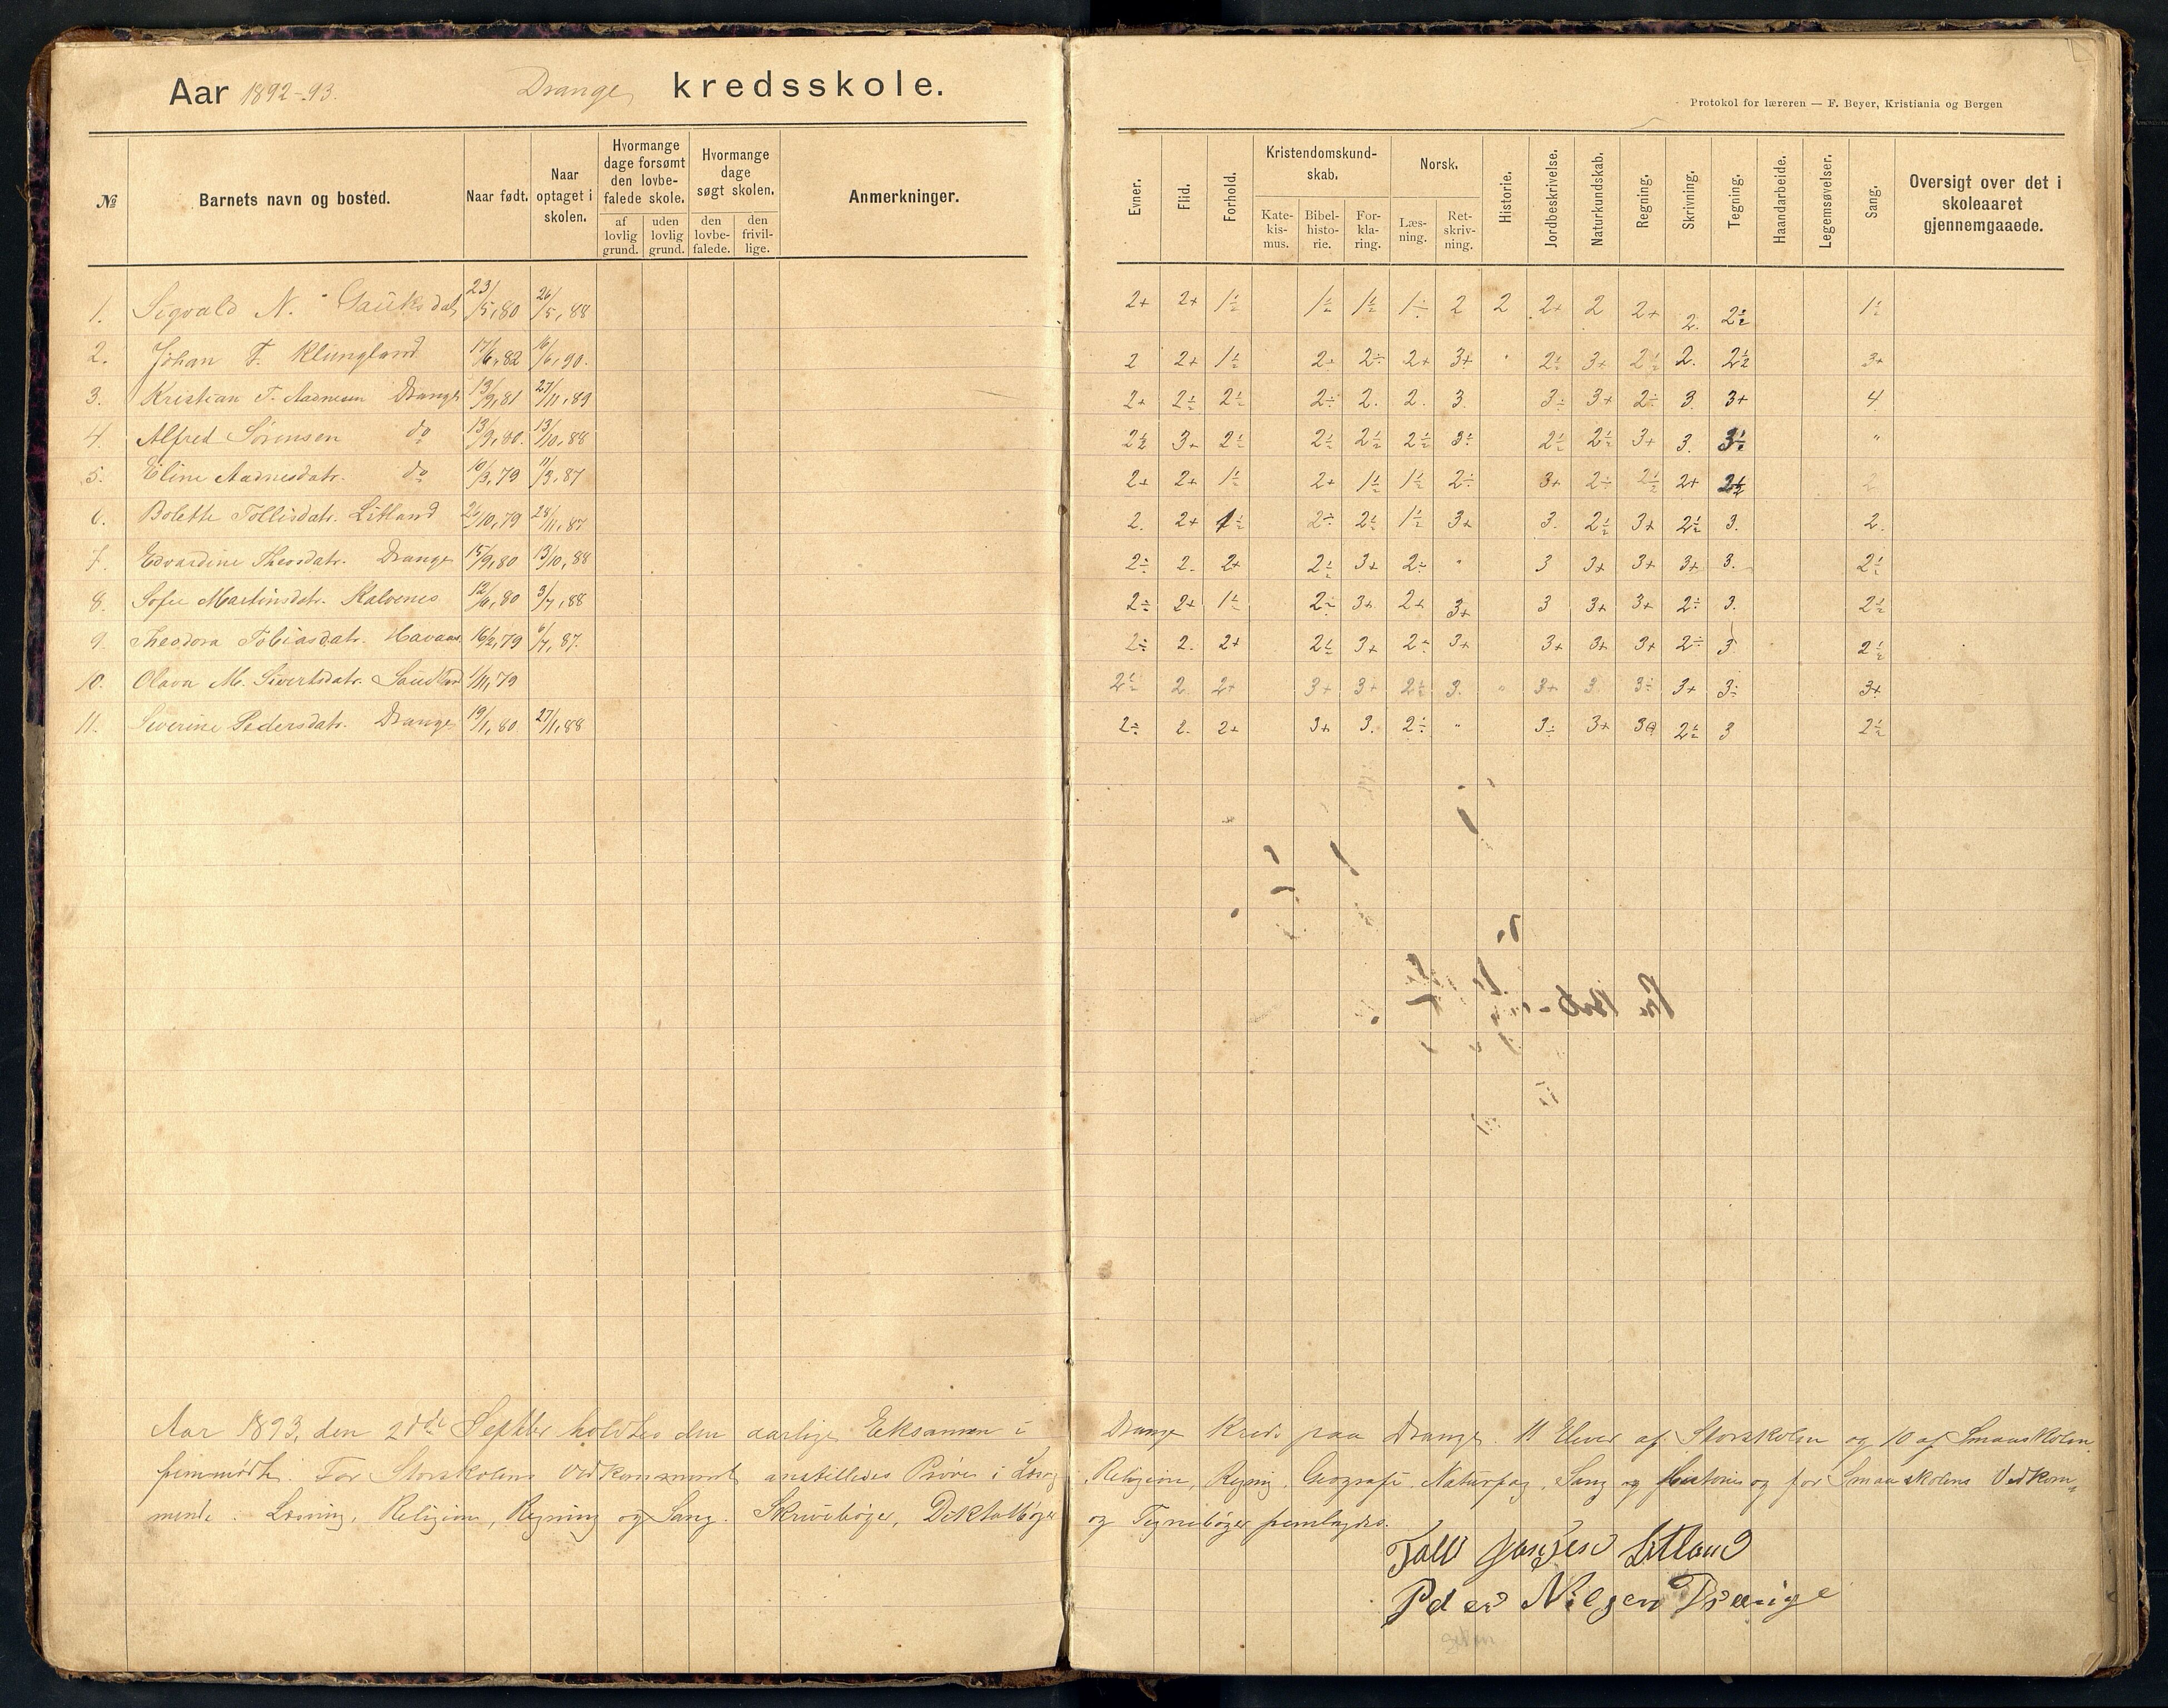 Aar 1892-93. Drange kredsskole.
Protokol for læreren — F. Beyer, Kristiania og Bergen
№ Barnets navn og bosted. Naar født. Naar optaget i skolen. Hvormange dage forsømt den lovbefalede skole. af lovlig grund. uden lovlig grund. Hvormange dage søgt skolen. den lovbefalede. den frivillige. Anmerkninger. Evner. Flid. Forhold. Kristendomskundskab. Katekismus. Bibelhistorie. Forklaring. Norsk. Læsning. Retskrivning. Historie. Jordbeskrivelse. Naturkundskab. Regning. Skrivning. Tegning. Haandarbeide. Legemsøvelser. Sang. Oversigt over det i skoleaaret gjennemgaaede.
1. Sigvald N. Gauksdal 23/5,80 26/5,88 2+ 2+ 1½ 1½ 1½ 1÷ 2 2 2+ 2 2+ 2. 2½ 1½
2. Johan T. Klungland 17/6,82 16/6,90. 2 2+ 1½ 2+ 2÷ 2+ 3+ 2½ 3+ 2½ 2. 2½ 3+
3. Kristian T. Aadnesen Drange 13/9,81 27/11,89 2+ 2½ 2½ 2÷ 2. 2. 3. 3÷ 3+ 2÷ 3. 3+ 4
4. Alfred Sørensen do 13/9,80. 13/10,88 2½ 3+ 2½ 2½ 2½ 2½ 3÷ 2½ 2½ 3+ 3. 3½ "
5. Eline Aadnesdatr. do 10/3,79 11/3,87 2+ 2+ 1½ 2+ 1½ 1½ 2÷ 3+ 2÷ 2½ 2+ 2½ 2
6. Bolette Tollisdatr. Litland 21/10,79 28/11,87 2. 2+ 1½ 2÷ 2½ 1½ 3+ 3. 2½ 3+ 2½ 3. 2.
7. Edvardine Theodatr. Drange 15/9,80 13/10,88 2÷ 2. 2+ 2½ 3+ 2÷ " 3 3+ 3+ 3+ 3. 2½
8. Sofie Martinsdatr. Kalvenes 12/9,80 3/7,88 2÷ 2+ 1½ 2÷ 3+ 2+ 3+ 3 3+ 3+ 2÷ 3. 2½
9. Theodora Tobiasdatr. Havaas 16/2,79 6/7,87. 2÷ 2. 2+ 2½ 3+ 2÷ 3+ 3+ 3+ 3+ 2÷ 3 2½
10. Olava M. Sivertsdatr. Saudland 1/11,79 2½ 2 2+ 3+ 3+ 2½ 3. " 3+ 3 3÷ 3+ 3÷ 3+
11. Severine Pedersdatr. Drange 19/1,80. 27/1,88 2÷ 2. 2+ 3+ 3. 2÷ " 3÷ 3+ 2½ 3 2½
Aar 1893, den 2den Septber holdtes den aarlige Eksamen i Drange Kreds paa Drange. 11 Elever af Storskolen og 10 af Smaaskolen
fremmødte. For Storskolens Vedkommende anstilledes Prøver i Læsng Religion, Regning, Geografi, Naturfag, Sang og Historie og for Smaaskolens Vedkom-
mende: Læsning, Religion, Regning og Sang. Skrivebøger, Diktatbøger og Tegnebøger fremlagdes.
Litland
Peder Nilsen Drange